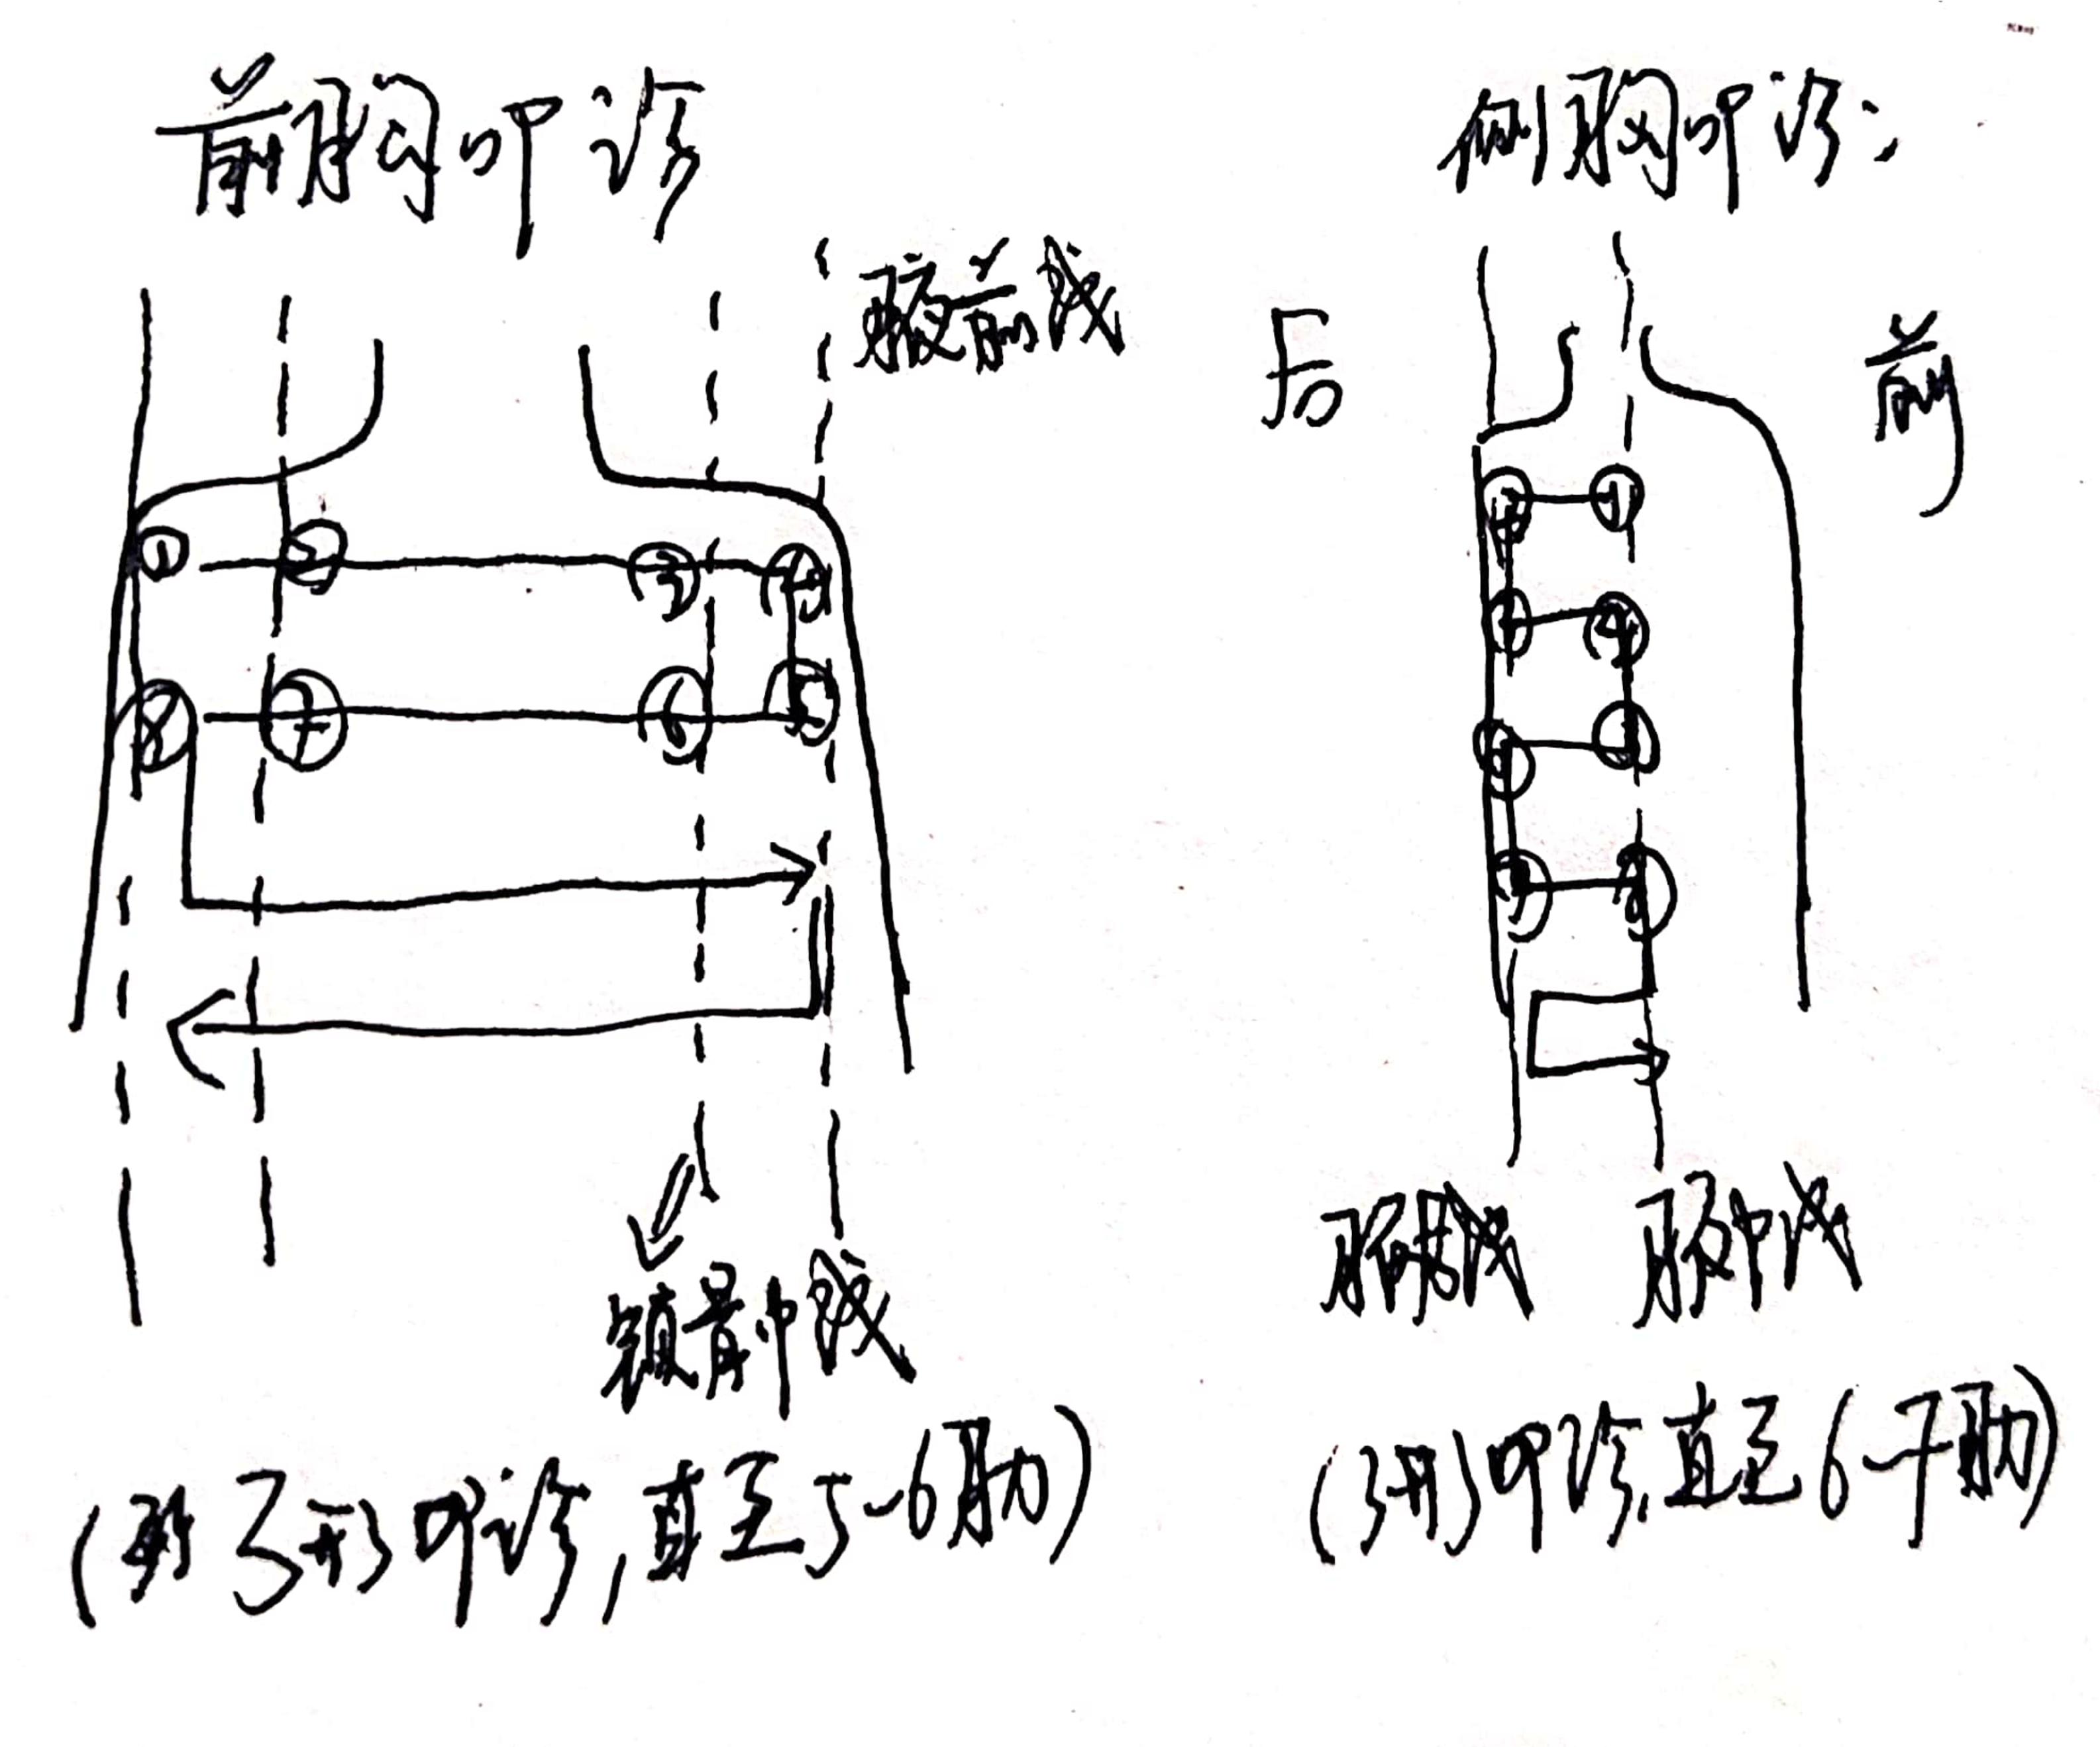 前胸叩诊
腋前线
① ② ③ ④
⑧ ⑦ ⑥ ⑤
锁骨中线
(弓形叩诊,直至5-6肋)
侧胸叩诊:
后 前
①
④
腋中线
(弓形叩诊,直至6-7肋)